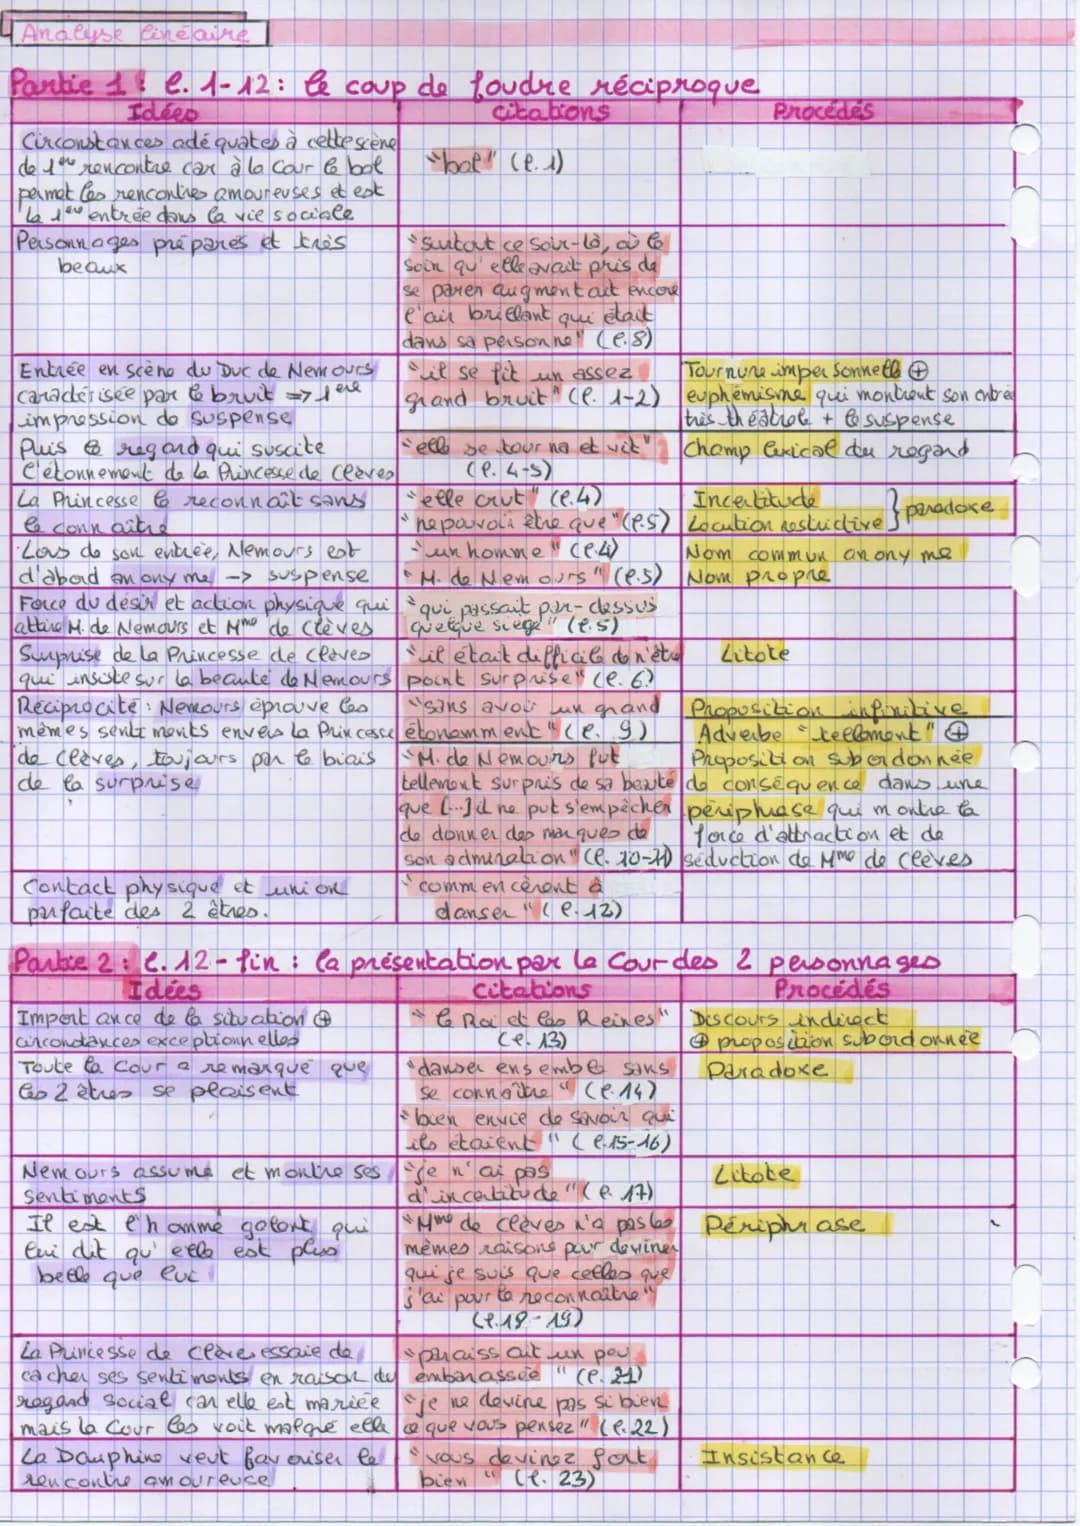 Analyse linéaire
Partie 1 : l. 1-12 : le coup de foudre réciproque
Idées
Citations
Procédés
Circonstances adéquates à cette scène
de 1ère rencontre car à la Cour le bal
permet les rencontres amoureuses et est
la 1ère entrée dans la vie sociale
"bal" (l. 1)
Personnages préparés et très
beaux
"Surtout ce soir-là, où le
soin qu'elle avait pris de
se parer augmentait encore
l'air brillant qui était
dans sa personne" (l.8)
Entrée en scène du Duc de Nemours
caractérisée par le bruit => 1ère
impression de suspense
"il se fit un assez
grand bruit" (l. 1-2)
Tournure impersonnelle ⊕
euphémisme qui montrent son entrée
très théâtrale + le suspense
Puis le regard qui suscite
l'étonnement de la Princesse de Clèves
"elle se tourna et vit"
(l. 4-5)
Champ lexical du regard
La Princesse le reconnaît sans
le connaître
"elle crut" (l.4)
"ne pouvoir être que" (l.5)
Incertitude
Locution restrictive } paradoxe
Lors de son entrée, Nemours est
d'abord anonyme -> suspense
"un homme" (l.4)
"M. de Nemours" (l.5)
Nom commun anonyme
Nom propre
Force du désir et action physique qui
attire M. de Nemours et Mme de Clèves
"qui passait par-dessus
quelque siège" (l.5)
Surprise de la Princesse de Clèves
qui insiste sur la beauté de Nemours
"il était difficile de n'être
point surprise" (l. 6)
Litote
Réciprocité : Nemours éprouve les
mêmes sentiments envers la Princesse
de Clèves, toujours par le biais
de la surprise
"sans avoir un grand
étonnamment" (l. 9)
"M. de Nemours fut
tellement surpris de sa beauté
que [...] il ne put s'empêcher
de donner des marques de
son admiration" (l. 10-11)
Proposition infinitive
Adverbe "tellement" ⊕
Proposition subordonnée
de conséquence dans une
périphrase qui montre la
force d'attraction et de
séduction de Mme de Clèves
Contact physique et union
parfaite des 2 êtres.
"commencèrent à
danser" (l. 12)
Partie 2 : l. 12 - fin : la présentation par la Cour des 2 personnages
Idées
Citations
Procédés
Importance de la situation ⊕
circonstances exceptionnelles
"le Roi et les Reines"
(l. 13)
Discours indirect
⊕ proposition subordonnée
Toute la Cour a remarqué que
les 2 êtres se plaisent
"danser ensemble sans
se connaître" (l.14)
"bien envie de savoir qui
ils étaient" (l.15-16)
Paradoxe
Nemours assume et montre ses
sentiments
"je n'ai pas
d'incertitude" (l. 17)
Litote
Il est l'homme galant qui
lui dit qu'elle est plus
belle que lui
"Mme de Clèves n'a pas les
mêmes raisons pour deviner
qui je suis que celles que
j'ai pour la reconnaître"
(l.18-19)
Périphrase
La Princesse de Clèves essaie de
cacher ses sentiments en raison du
regard social car elle est mariée
mais la Cour les voit malgré elle
"paraissait un peu
embarassée" (l. 21)
"je ne devine pas si bien
ce que vous pensez" (l.22)
La Dauphine veut favoriser la
rencontre amoureuse
"vous devinez fort
bien" (l. 23)
Insistance